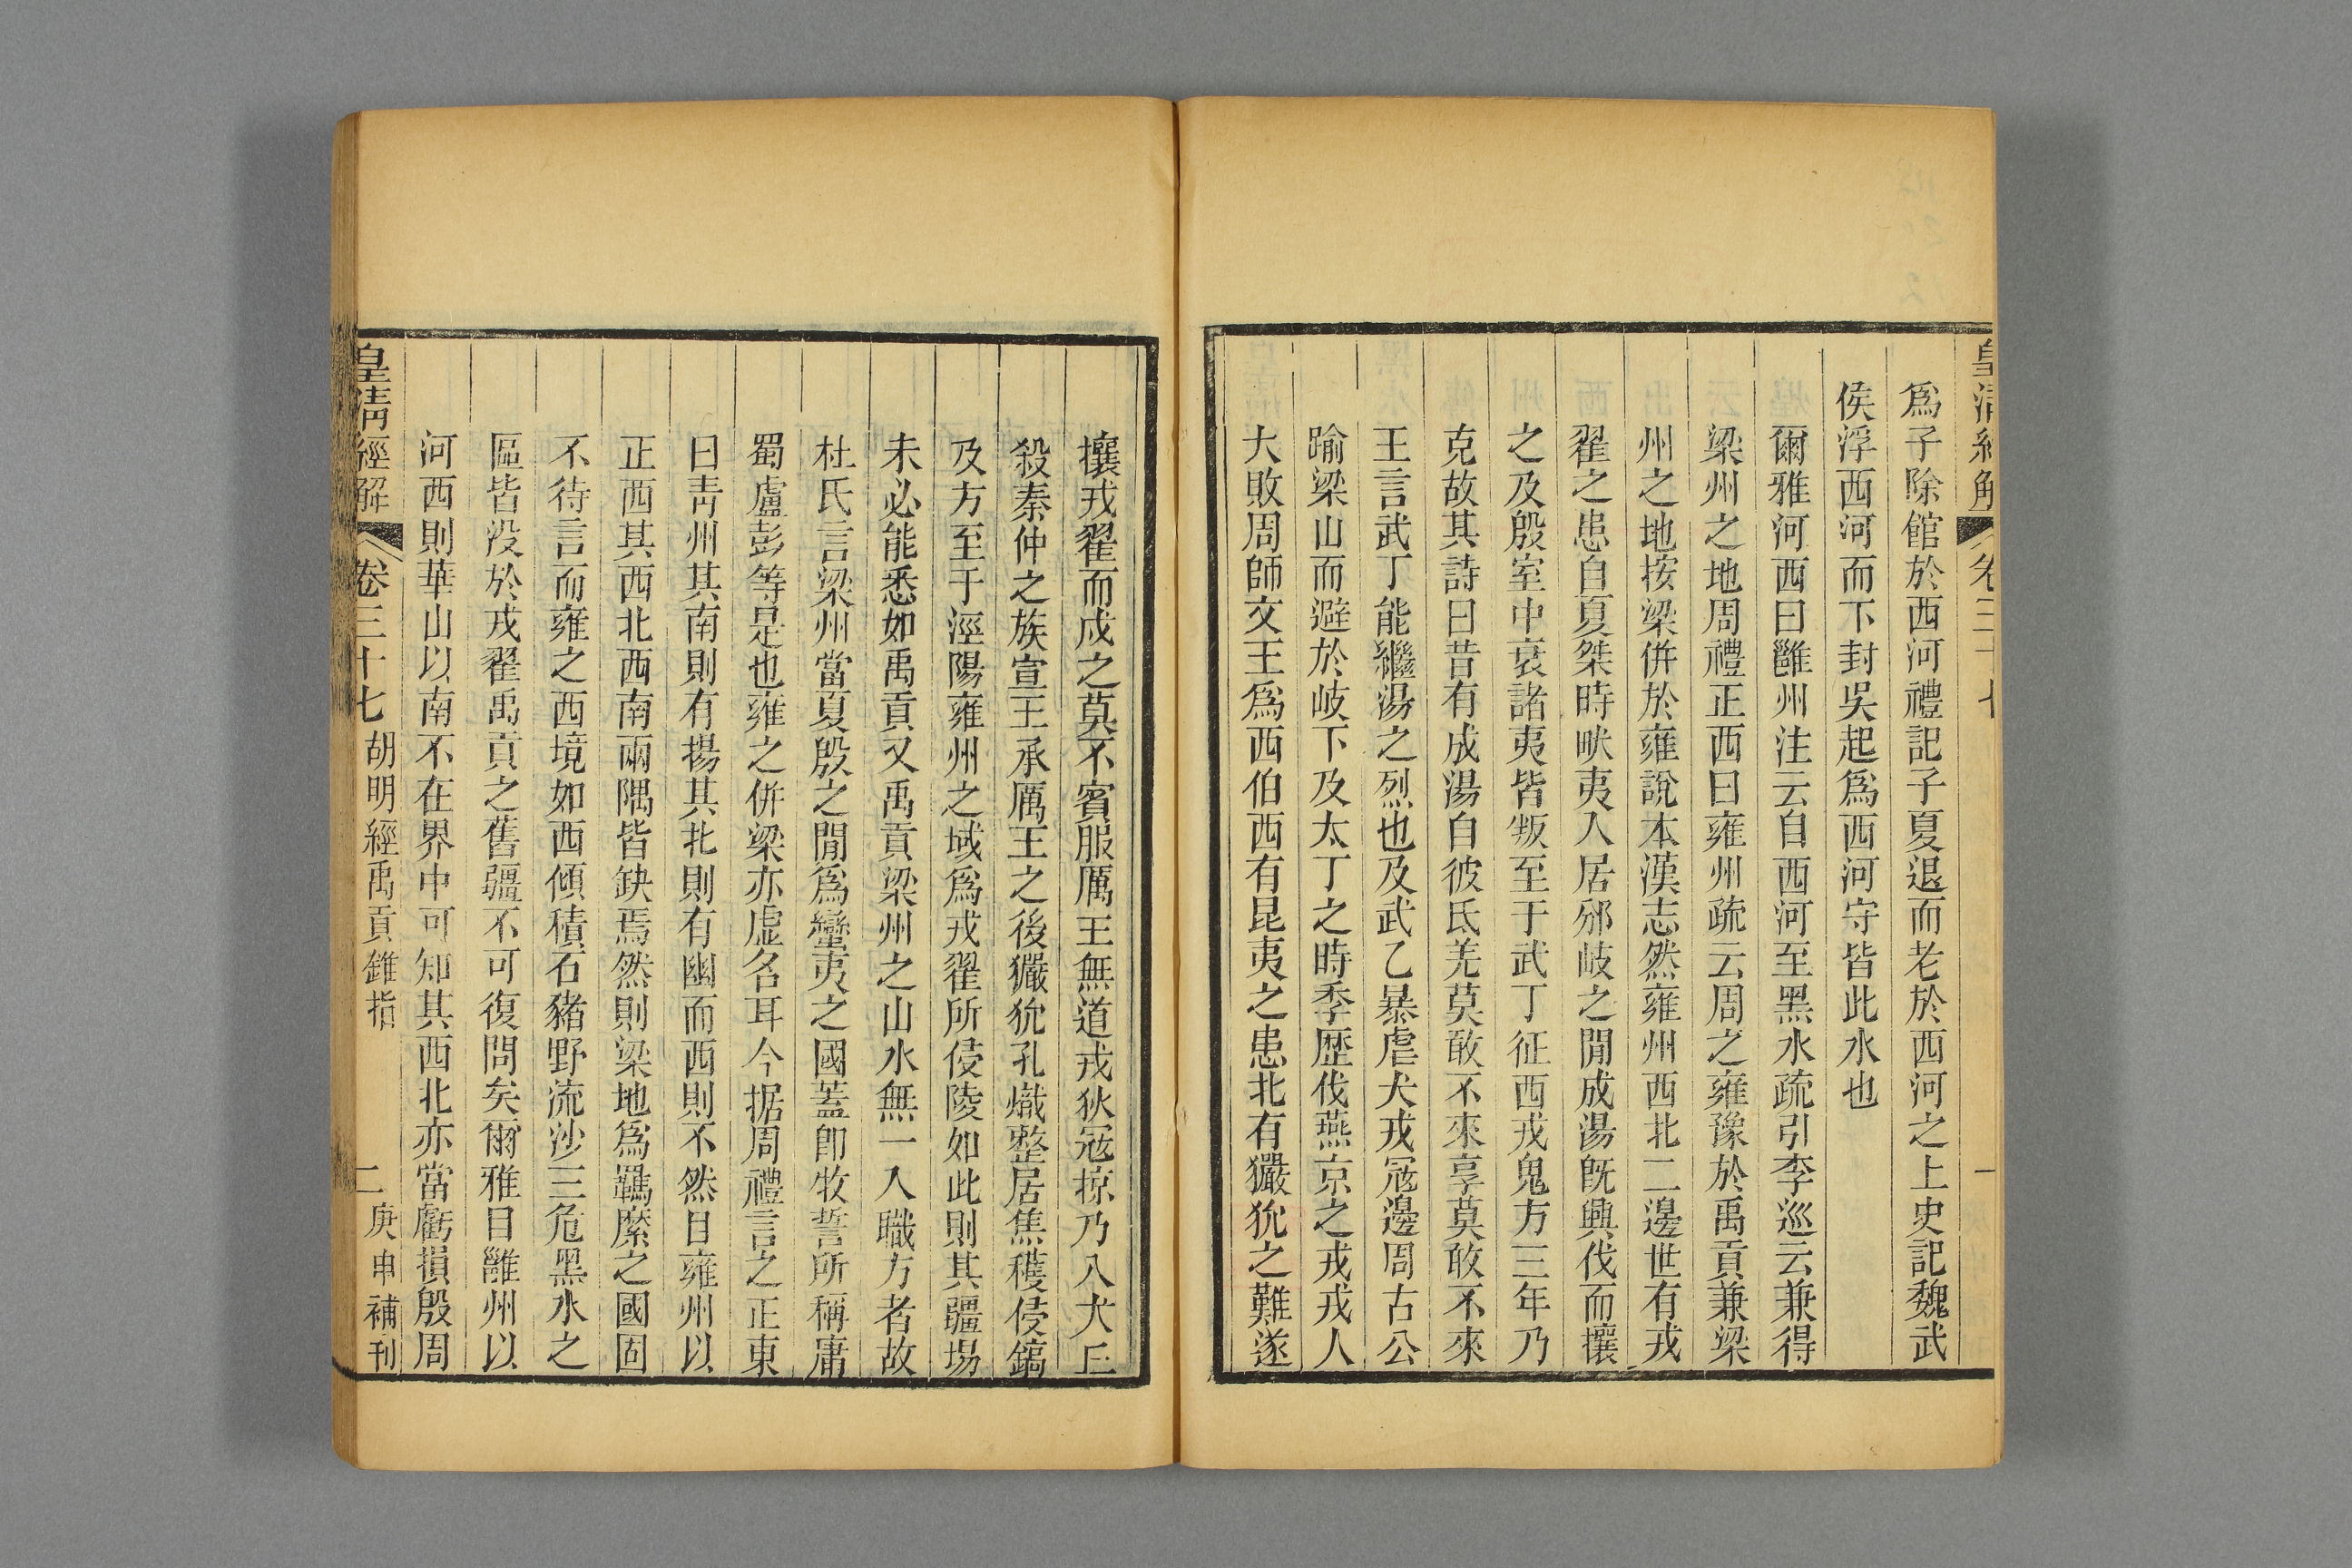 皇清經解 卷三十七 一
爲子除館於西河禮記子夏退而老於西河之上史記魏武
侯浮西河而下封吳起爲西河守皆此水也
爾雅河西曰雝州注云自西河至黑水疏引李巡云兼得
梁州之地周禮正西曰雍州疏云周之雍豫於禹貢兼梁
州之地按梁併於雍說本漢志然雍州西北二邊世有戎
翟之患自夏桀時畎夷入居邠岐之閒成湯旣興伐而攘
之及殷室中衰諸夷皆叛至于武丁征西戎鬼方三年乃
克故其詩曰昔有成湯自彼氐羌莫敢不來享莫敢不來
王言武丁能繼湯之烈也及武乙暴虐犬戎寇邊周古公
踰梁山而避於岐下及太丁之時季歷伐燕京之戎戎人
大敗周師文王爲西伯西有昆夷之患北有玁狁之難遂
攘戎翟而戍之莫不賓服厲王無道戎狄寇掠乃入犬𠀉
殺秦仲之族宣王承厲王之後玁狁孔熾整居焦穫侵鎬
及方至于涇陽雍州之域爲戎翟所侵陵如此則其疆場
未必能悉如禹貢又禹貢梁州之山水無一入職方者故
杜氏言梁州當夏殷之閒爲蠻夷之國蓋卽牧誓所稱庸
蜀盧彭等是也雍之併梁亦虛名耳今据周禮言之正東
曰靑州其南則有揚其北則有幽而西則不然曰雍州以
正西其西北西南兩隅皆缺焉然則梁地爲羈縻之國固
不待言而雍之西境如西傾積石豬野流沙三危黑水之
區皆没於戎翟禹貢之舊疆不可復問矣爾雅目雝州以
河西則華山以南不在界中可知其西北亦當虧損殷周
皇清經解 卷三十七 胡明經禹貢錐指 二 庚申補刊